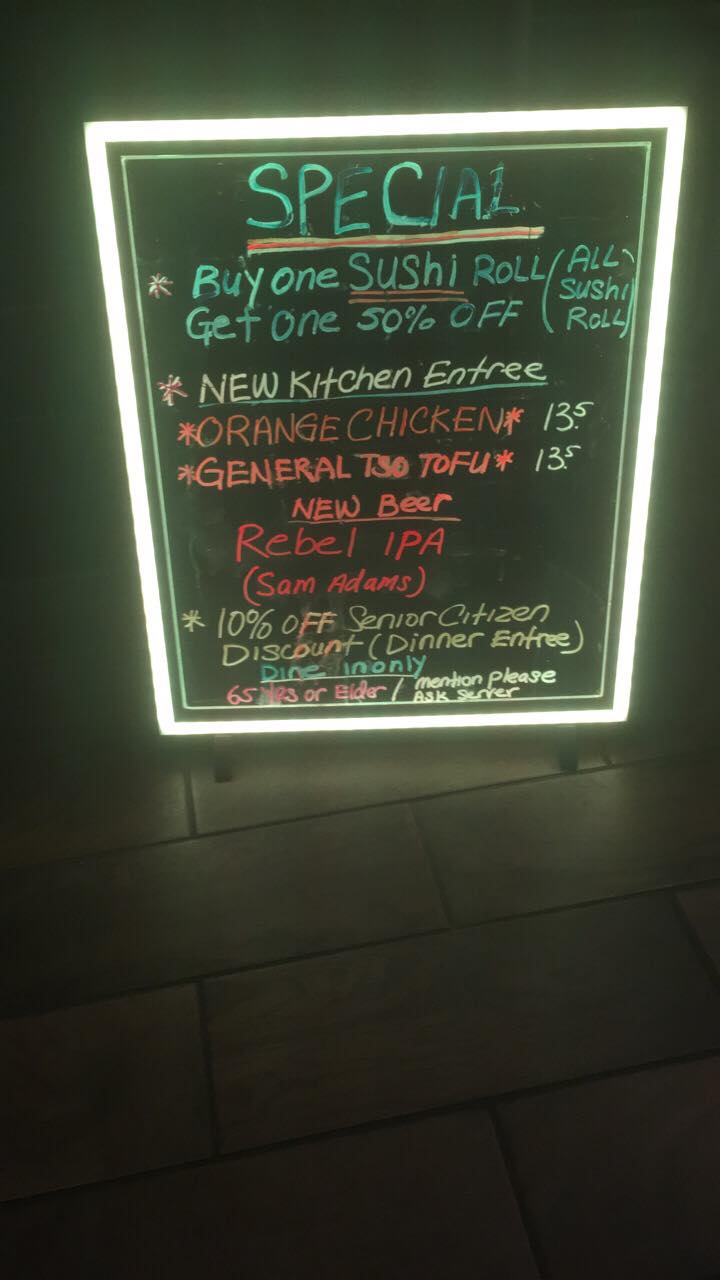 SPECIAL
* Buy one SUSHi ROLL (ALL SUSHi ROLL)
Get one 50% OFF
* NEW Kitchen Entree
*ORANGE CHICKEN* 13.5
*GENERAL TSO TOFU* 13.5
NEW Beer
Rebel IPA
(Sam Adams)
* 10% OFF Senior Citizen
Discount (Dinner Entree)
Dine in only
65 YRS or Elder / mention please
ASK Server